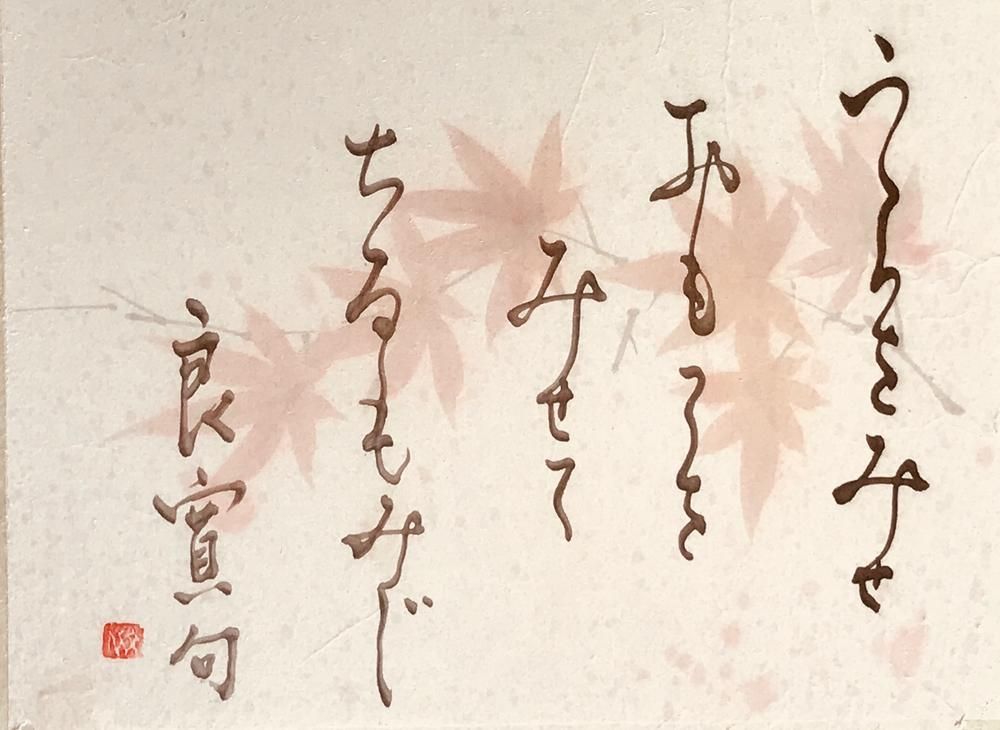 うらをみせ
おもてを
みせて
ちるもみじ
良寛句